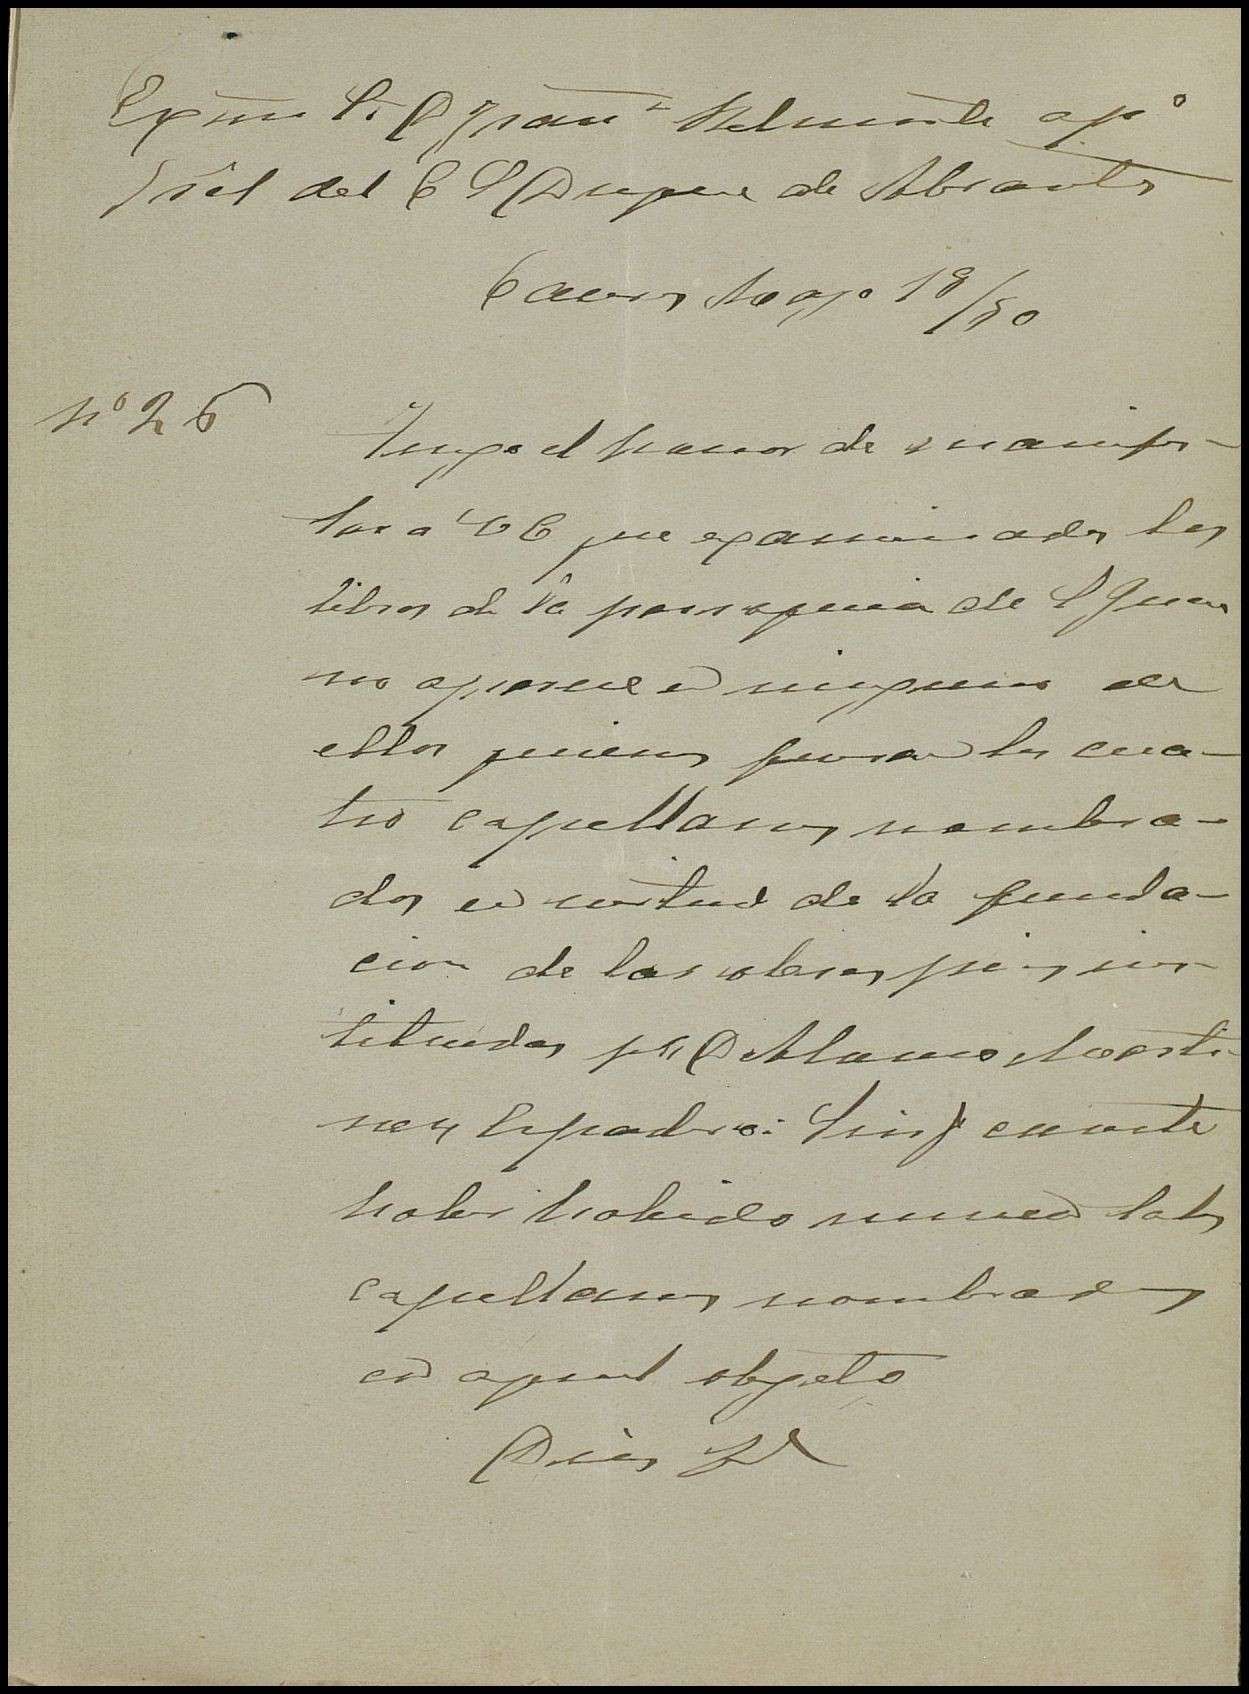 Exmo Sr D Franco Belmonte apo
Gral del E S Duque de Abrantes
Caceres Mayo 18/90
No 26
Tengo el honor de manifes-
tar a VE que examinados los
libros de la parroquia de S Juan
no aparece en ninguno de
ellos quienes fueran los cua-
tro capellanes nombra-
dos en virtud de la funda-
cion de las obras pias ins-
tituidas pr D Alvaro Marti-
nez Espadero: Sin q conste
haber habido nunca tales
capellanes nombrados
en aquel objeto
Dios